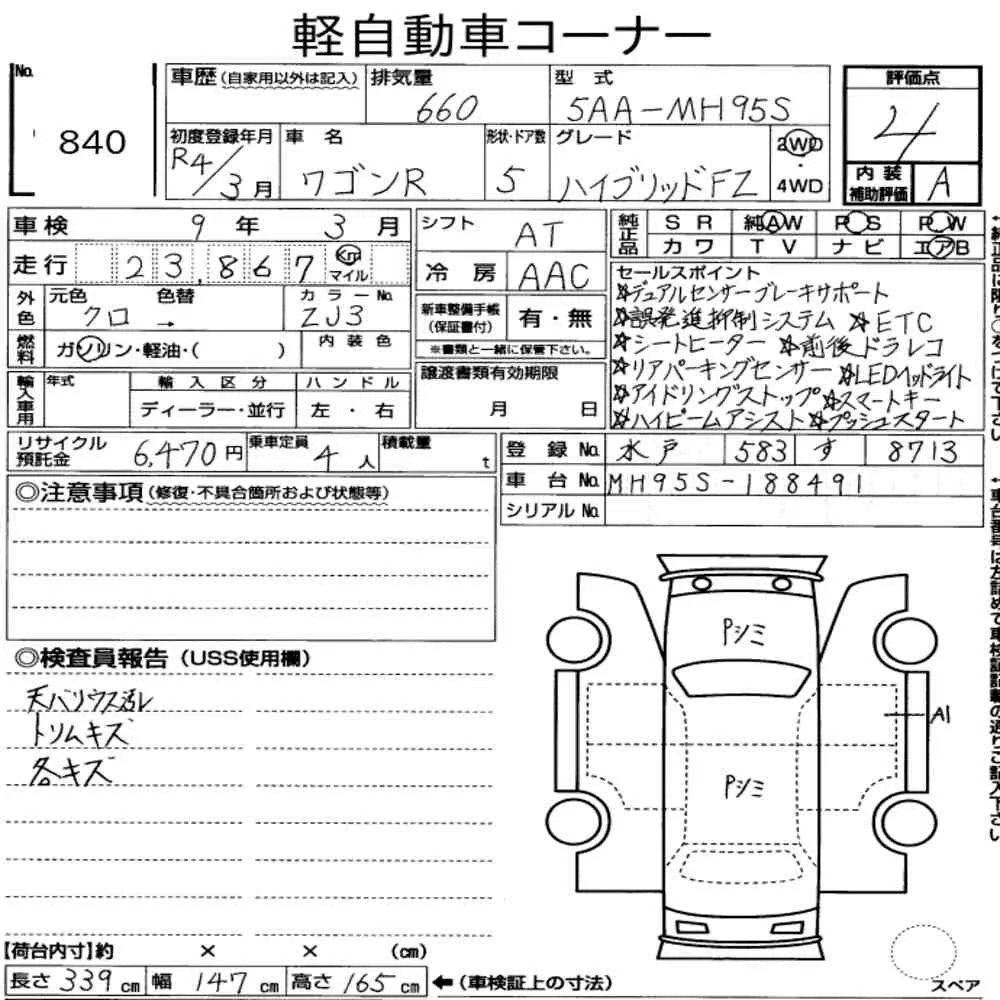 軽自動車コーナー
No. 840
車歴 (自家用以外は記入)
排気量 660
型式 5AA-MH95S
評価点 4
初度登録年月 R4/3月
車名 ワゴンR
形状・ドア数 5
グレード ハイブリッドFZ
2WD・4WD
内装補助評価 A
車検 9年 3月
走行 23,867 Km マイル
シフト AT
冷房 AAC
純正品 SR 純AW PS PW
カワ TV ナビ エアB
外色 元色 クロ → 色替
カラーNo. ZJ3
燃料 ガソリン・軽油・( )
内装色
新車整備手帳(保証書付) 有・無
※書類と一緒に保管下さい。
セールスポイント
☆デュアルセンサーブレーキサポート
☆誤発進抑制システム ☆ETC
☆シートヒーター ☆前後ドラレコ
☆リアパーキングセンサー ☆LEDヘッドライト
☆アイドリングストップ ☆スマートキー
☆ハイビームアシスト ☆プッシュスタート
輸入車用 年式 輸入区分 ハンドル
ディーラー・並行 左・右
譲渡書類有効期限
月 日
リサイクル預託金 6,470円
乗車定員 4人
積載量 t
登録No. 水戸 583 す 8713
車台No. MH95S-188491
シリアルNo.
◎注意事項 (修復・不具合箇所および状態等)
◎検査員報告 (USS使用欄)
天バリウス汚レ
トリムキズ
各キズ
Pシミ
A1
Pシミ
【荷台内寸】約 × × (cm)
長さ 339 cm 幅 147 cm 高さ 165 cm ←(車検証上の寸法)
スペア